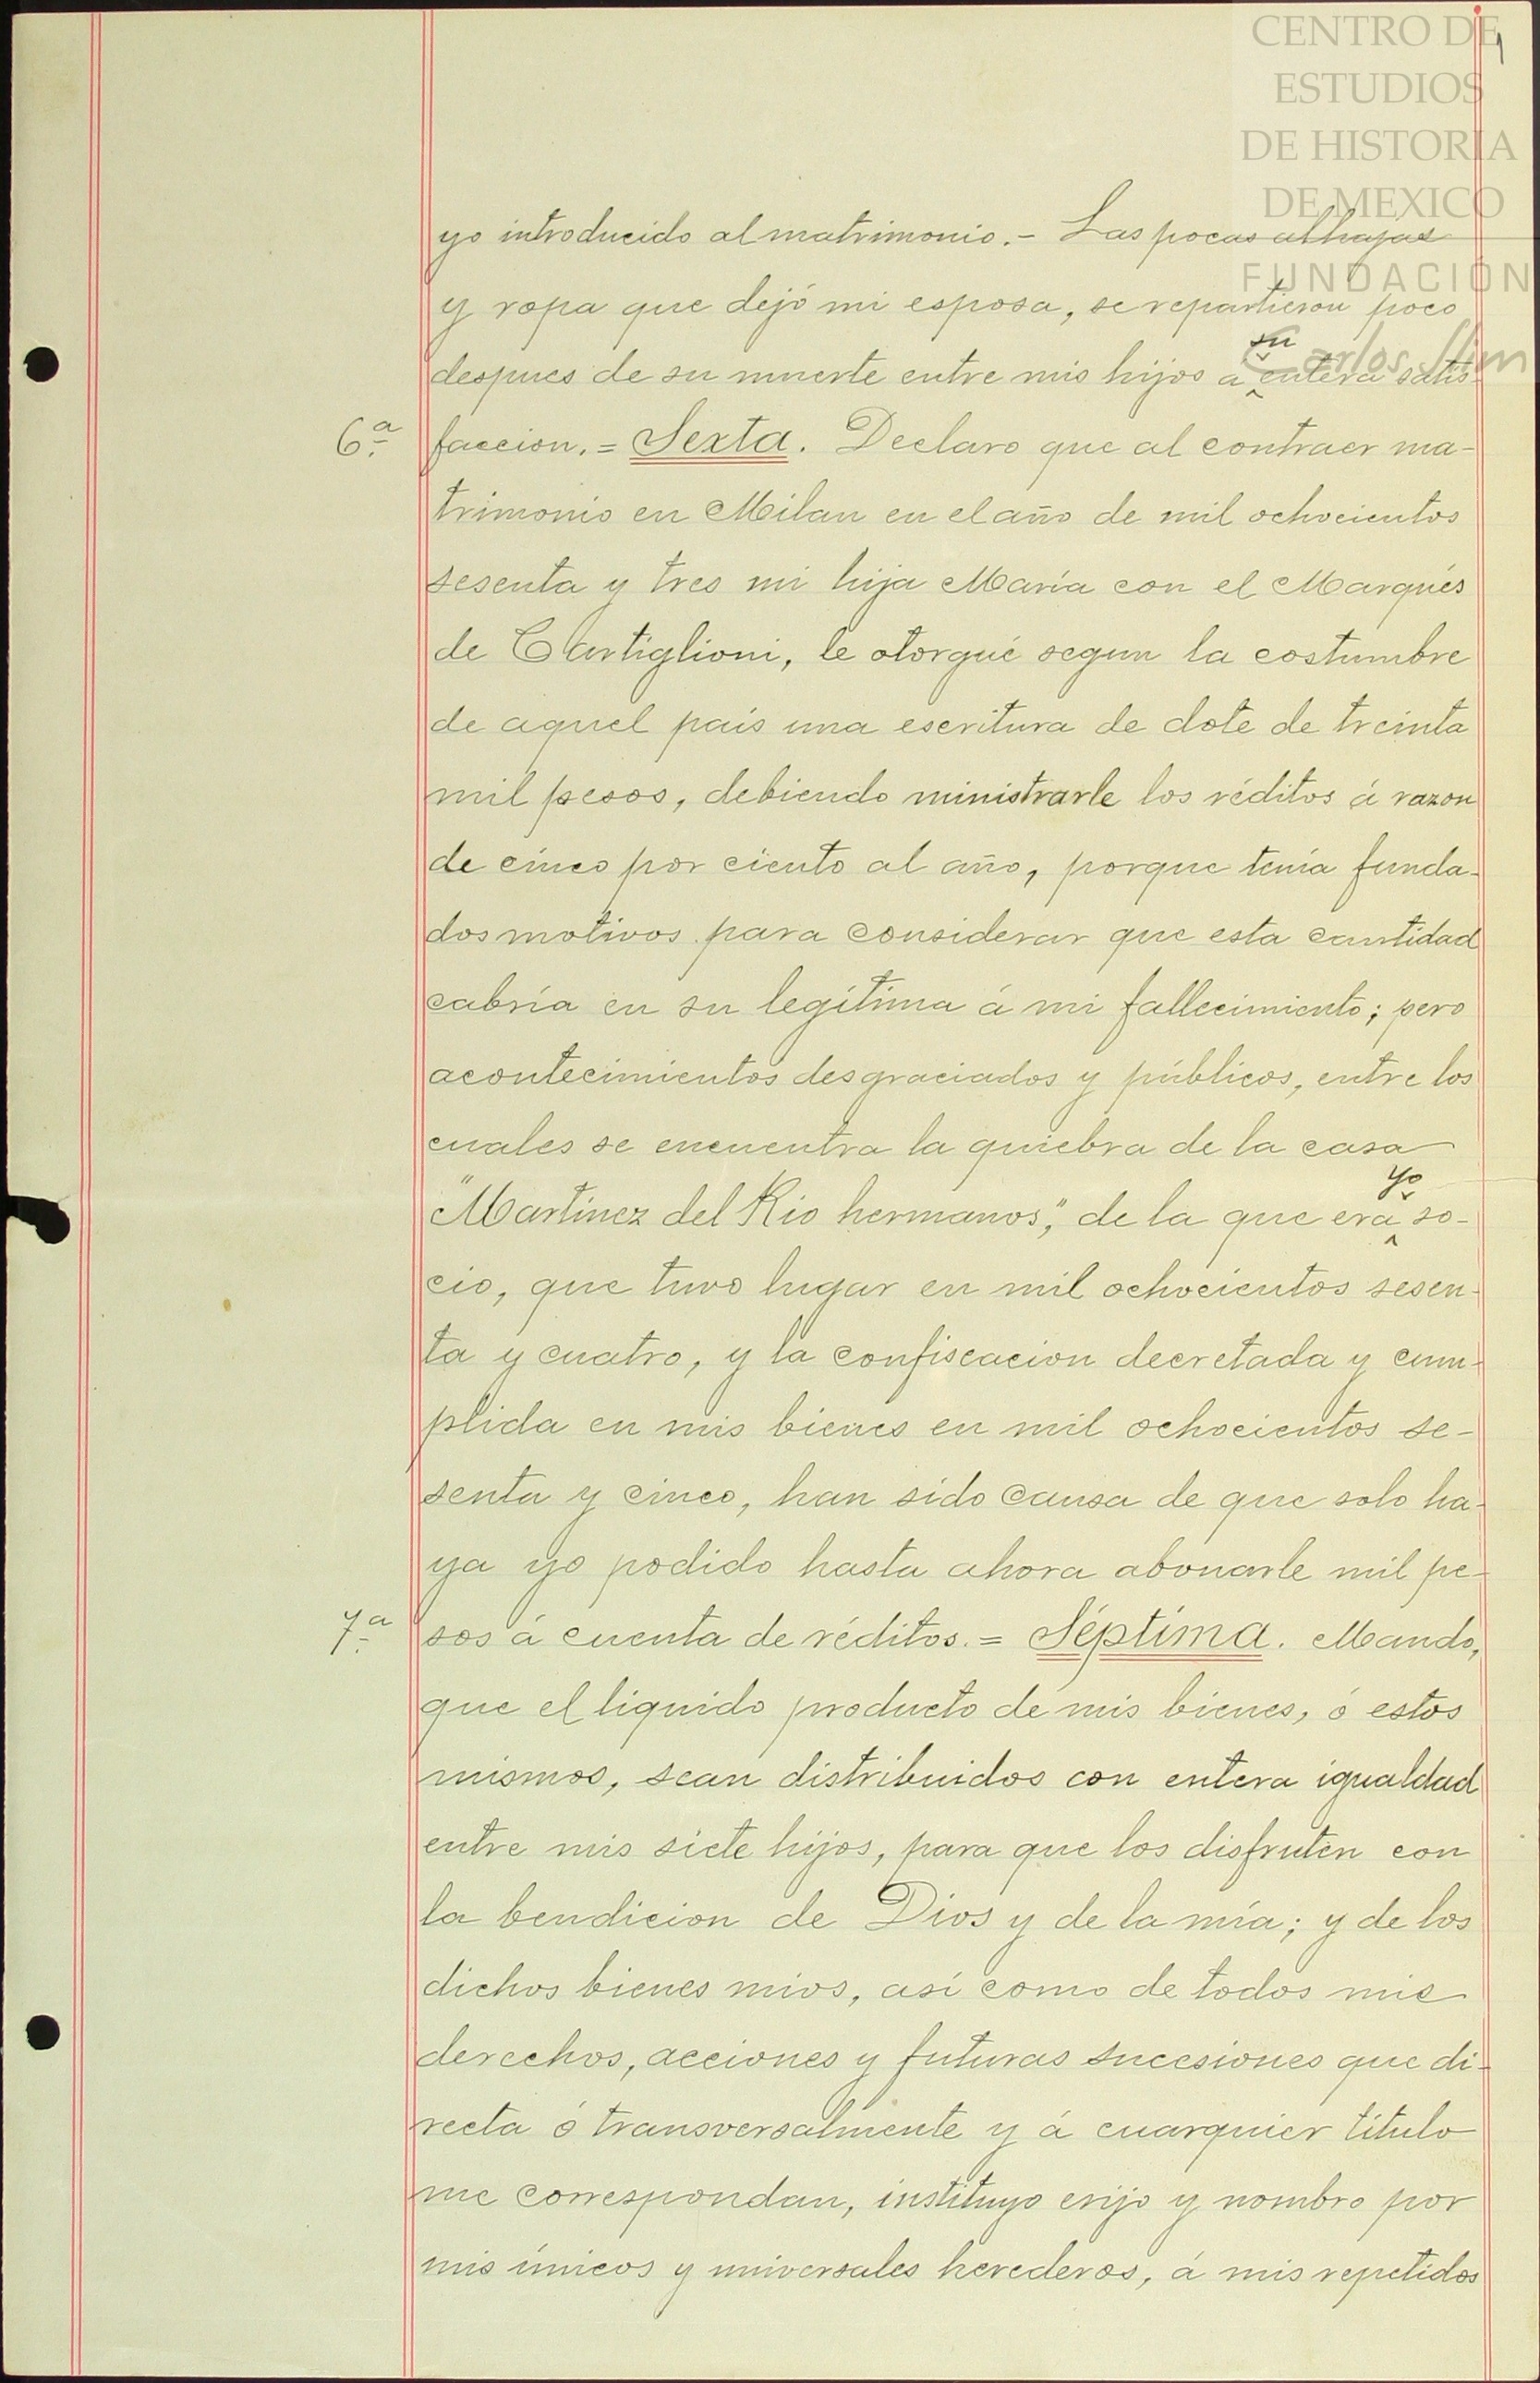 CENTRO DE
ESTUDIOS
DE HISTORIA
DE MEXICO
FUNDACION
Carlos Slim
yo introducido al matrimonio.- Las pocas alhajas
y ropa que dejó mi esposa, se repartieron poco
despues de su muerte entre mis hijos a su entera satis-
6.ª faccion. = Sexta. Declaro que al contraer ma-
trimonio en Milan en el año de mil ochocientos
sesenta y tres mi hija María con el Marqués
de Cartiglioni, le otorgué segun la costumbre
de aquel país una escritura de dote de treinta
mil pesos, debiendo ministrarle los réditos á razon
de cinco por ciento al año, porque tenía funda-
dos motivos para considerar que esta cantidad
cabría en su legítima á mi fallecimiento; pero
acontecimientos desgraciados y públicos, entre los
cuales se encuentra la quiebra de la casa
"Martinez del Rio hermanos," de la que era yo so-
cio, que tuvo lugar en mil ochocientos sesen-
ta y cuatro, y la confiscacion decretada y cum-
plida en mis bienes en mil ochocientos se-
senta y cinco, han sido causa de que solo ha-
ya yo podido hasta ahora abonarle mil pe-
7.ª sos á cuenta de réditos. = Séptima. Mando,
que el liquido producto de mis bienes, ó estos
mismos, sean distribuidos con entera igualdad
entre mis siete hijos, para que los disfruten con
la bendicion de Dios y de la mía; y de los
dichos bienes mios, así como de todos mis
derechos, acciones y futuras sucesiones que di-
recta ó transversalmente y á cuarquier título
me correspondan, instituyo erijo y nombro por
mis únicos y universales herederos, á mis repetidos